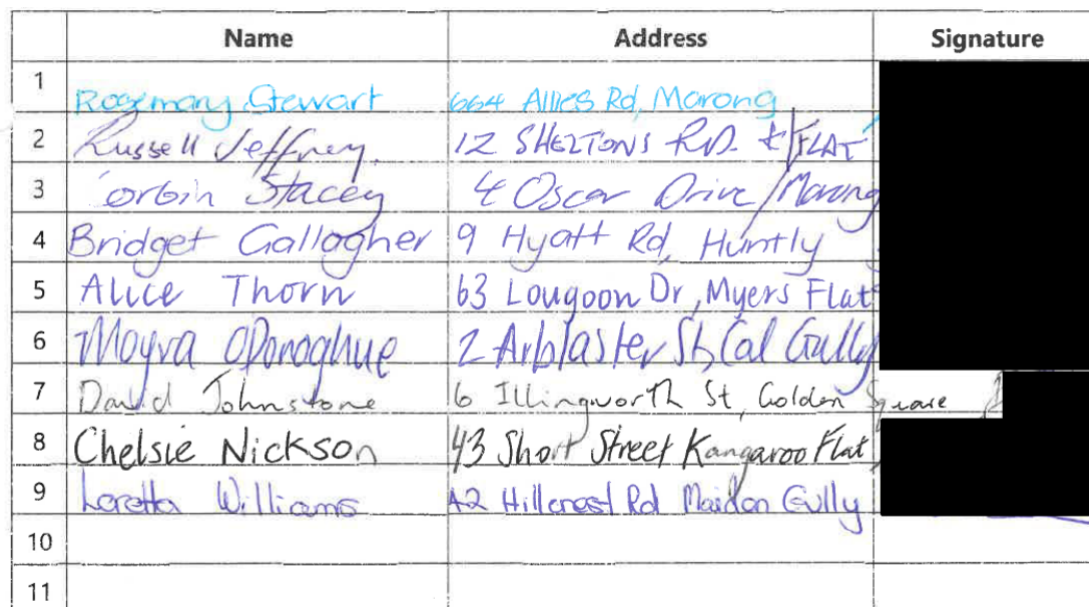 Name Address Signature
1 Rosemary Stewart 664 Allies Rd, Marong
2 Russell Jeffrey. 12 SHELTONS RD. K/FLAT
3 Corbin Stacey 4 Oscar Drive/Marong
4 Bridget Gallagher 9 Hyatt Rd, Huntly
5 Alice Thorn 63 Lougoon Dr, Myers Flat
6 Moyra ODonoghue 2 Arblaster St, Cal Gully
7 David Johnstone 6 Illingworth St, Golden Square
8 Chelsie Nickson 43 Short Street Kangaroo Flat
9 Loretta Williams 42 Hillcrest Rd Maiden Gully
10
11